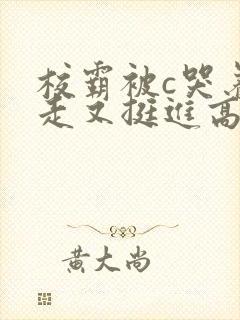 校霸被c哭着
走又挺进高
黄大尚